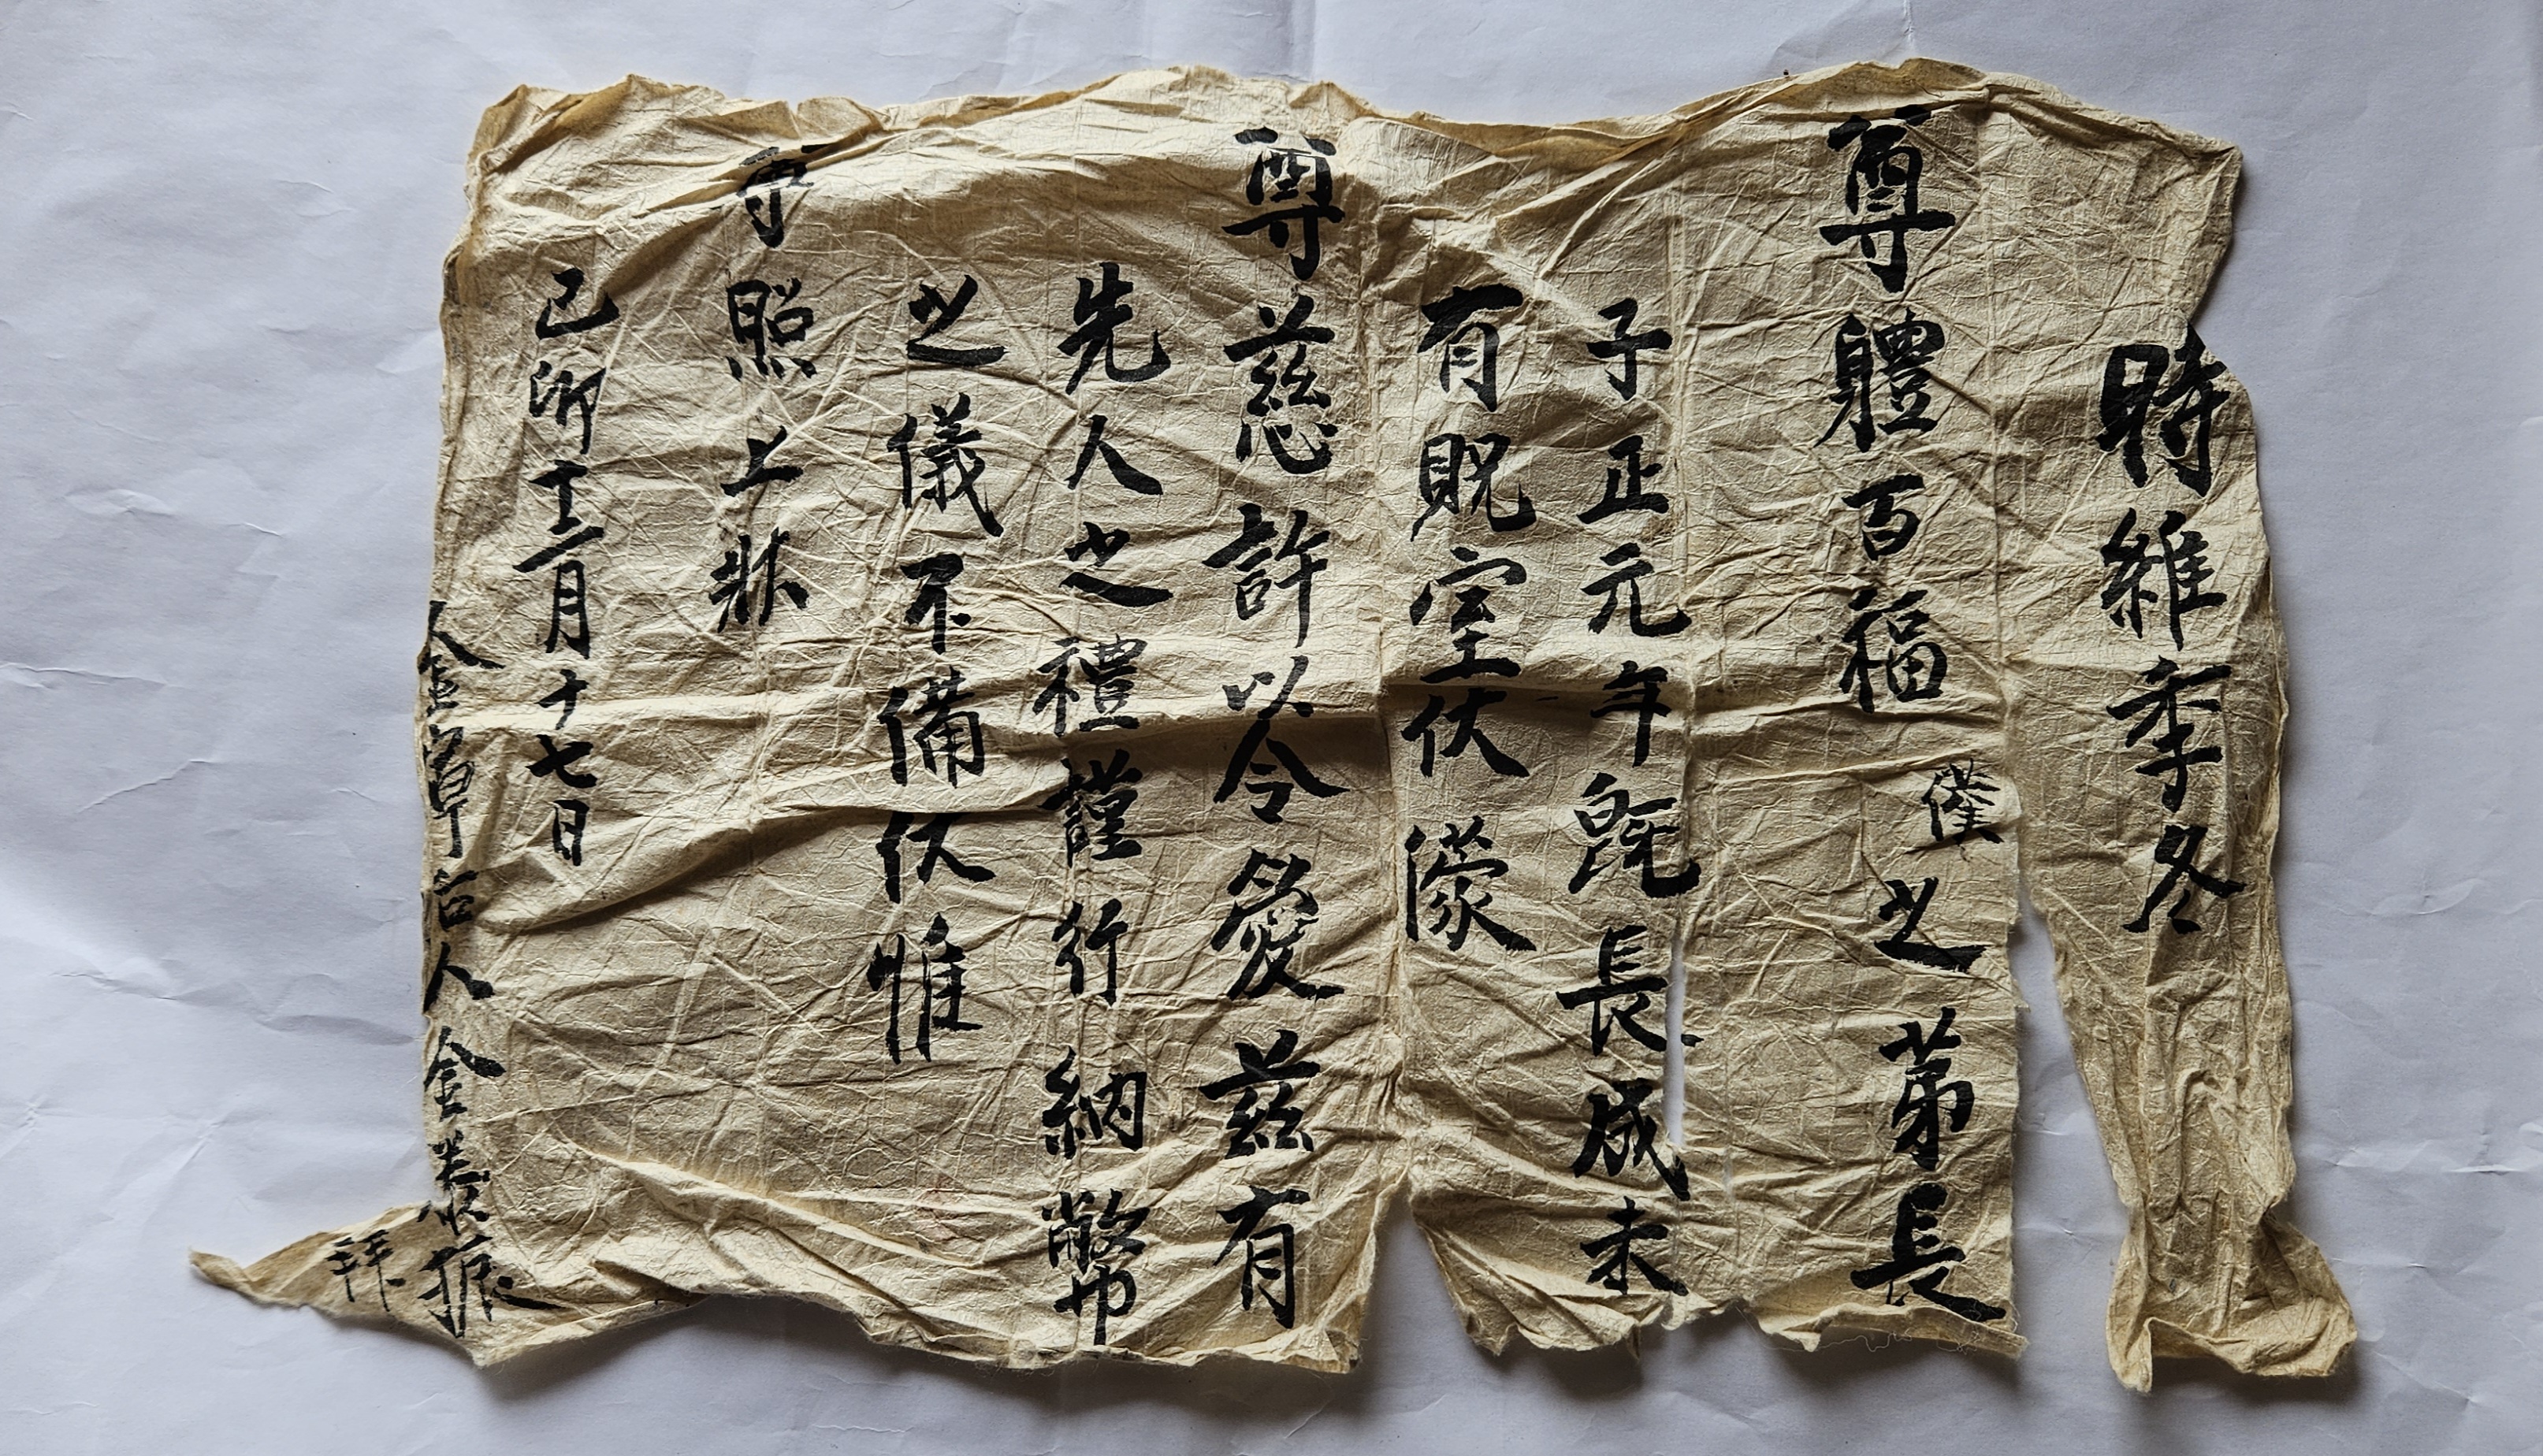 時維季冬
尊體百福僕之第長
子正元年旣長成未
有貺室伏濛
尊慈許以令愛茲有
先人之禮謹行納幣
之儀不備伏惟
尊照上狀
己卯十二月十七日
金草后人金 振
拜